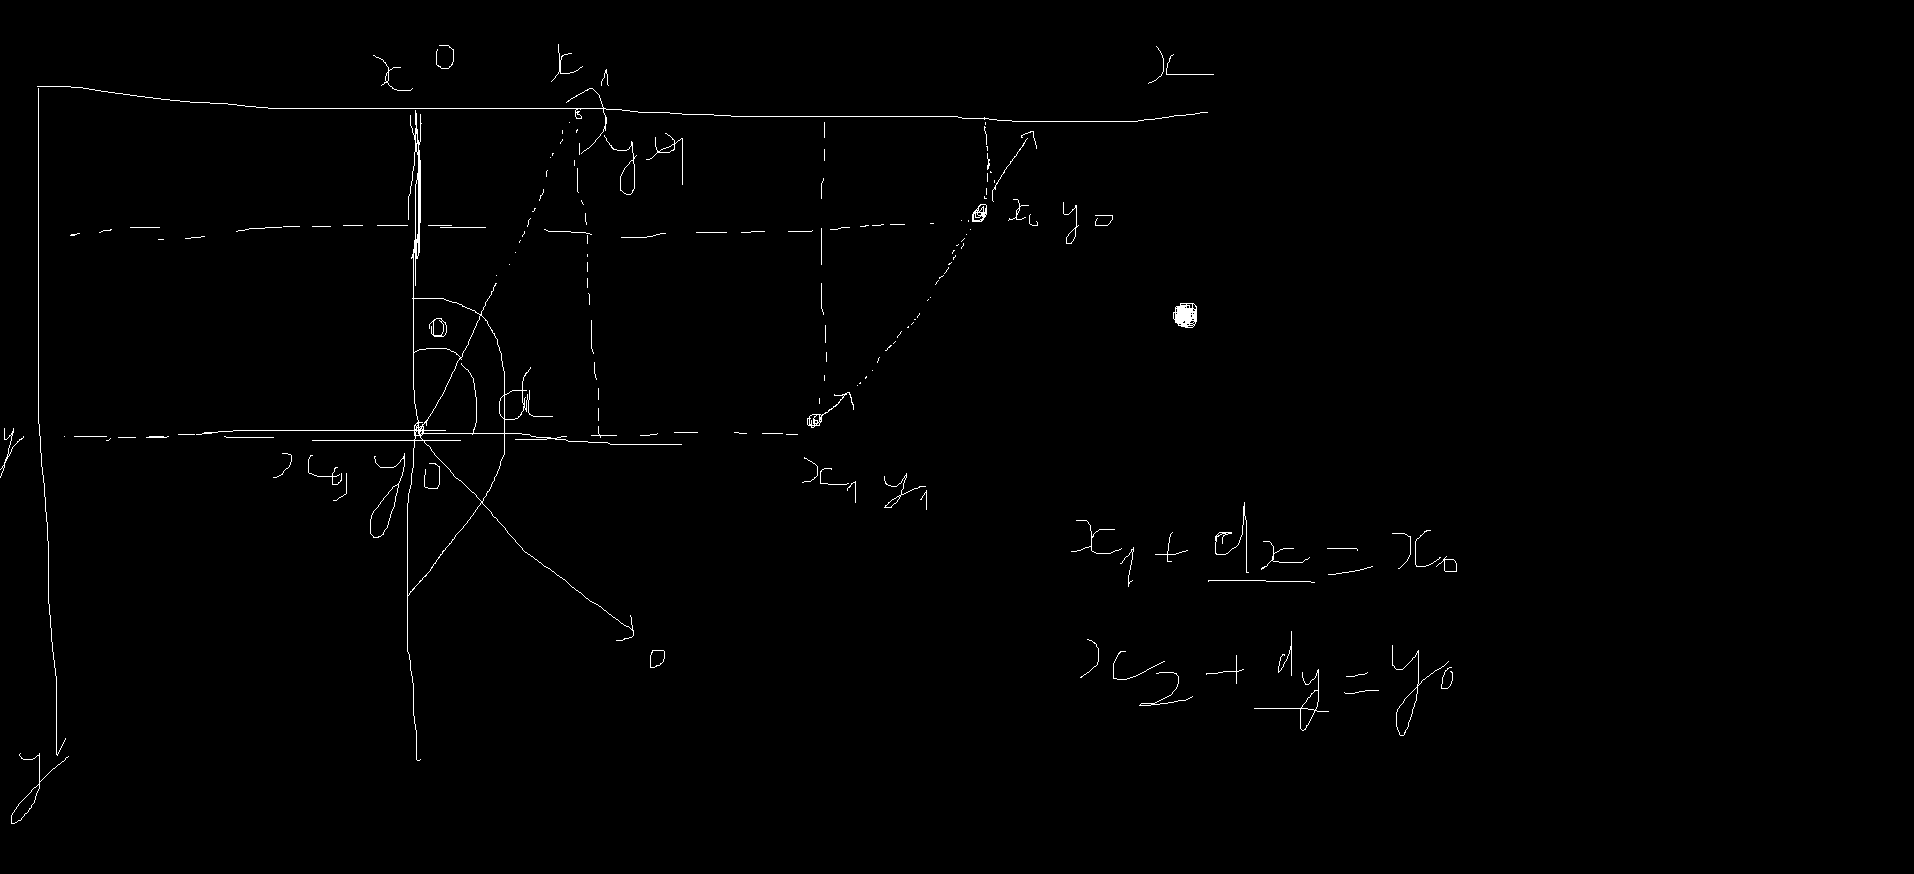 x 0
x 1
x
y
x0 y0
0
d
y
x0, y0
x1 y1
x1 + dx = x0
0
x2 + dy = y0
y